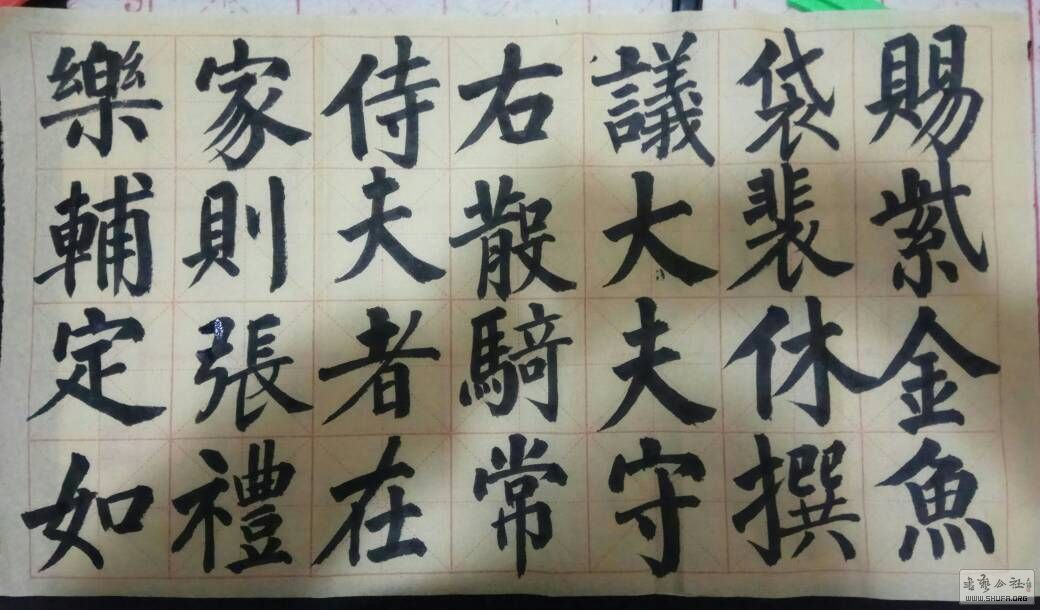 賜紫金魚
袋裴休撰
議大夫守
右散騎常
侍夫者在
家則張禮
樂輔定如
書藝公社
WWW.SHUFA.ORG